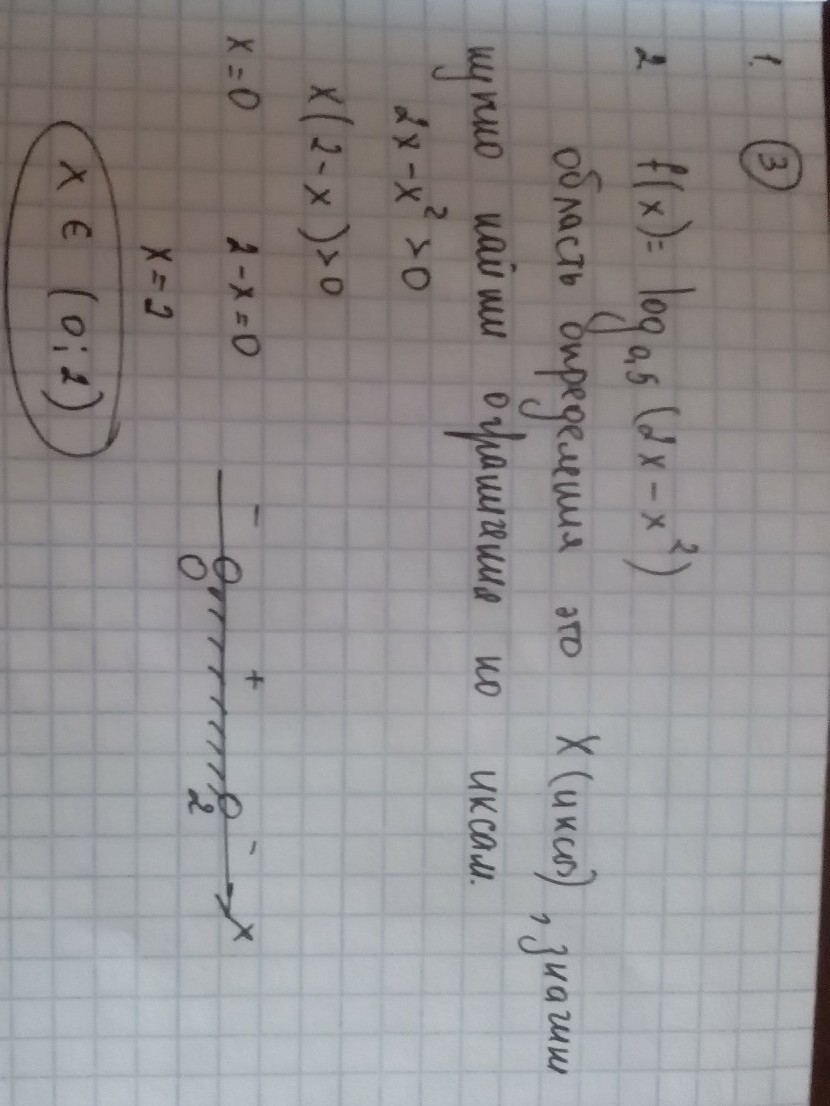 1. ③
2 f(x) = log₀,₅ (2x - x²)
область определения это X (иксы), значит
нужно найти ограничения по иксам.
2x - x² > 0
x(2 - x) > 0
x = 0 2 - x = 0
x = 2
- + -
0 2 x
x ∈ (0; 2)